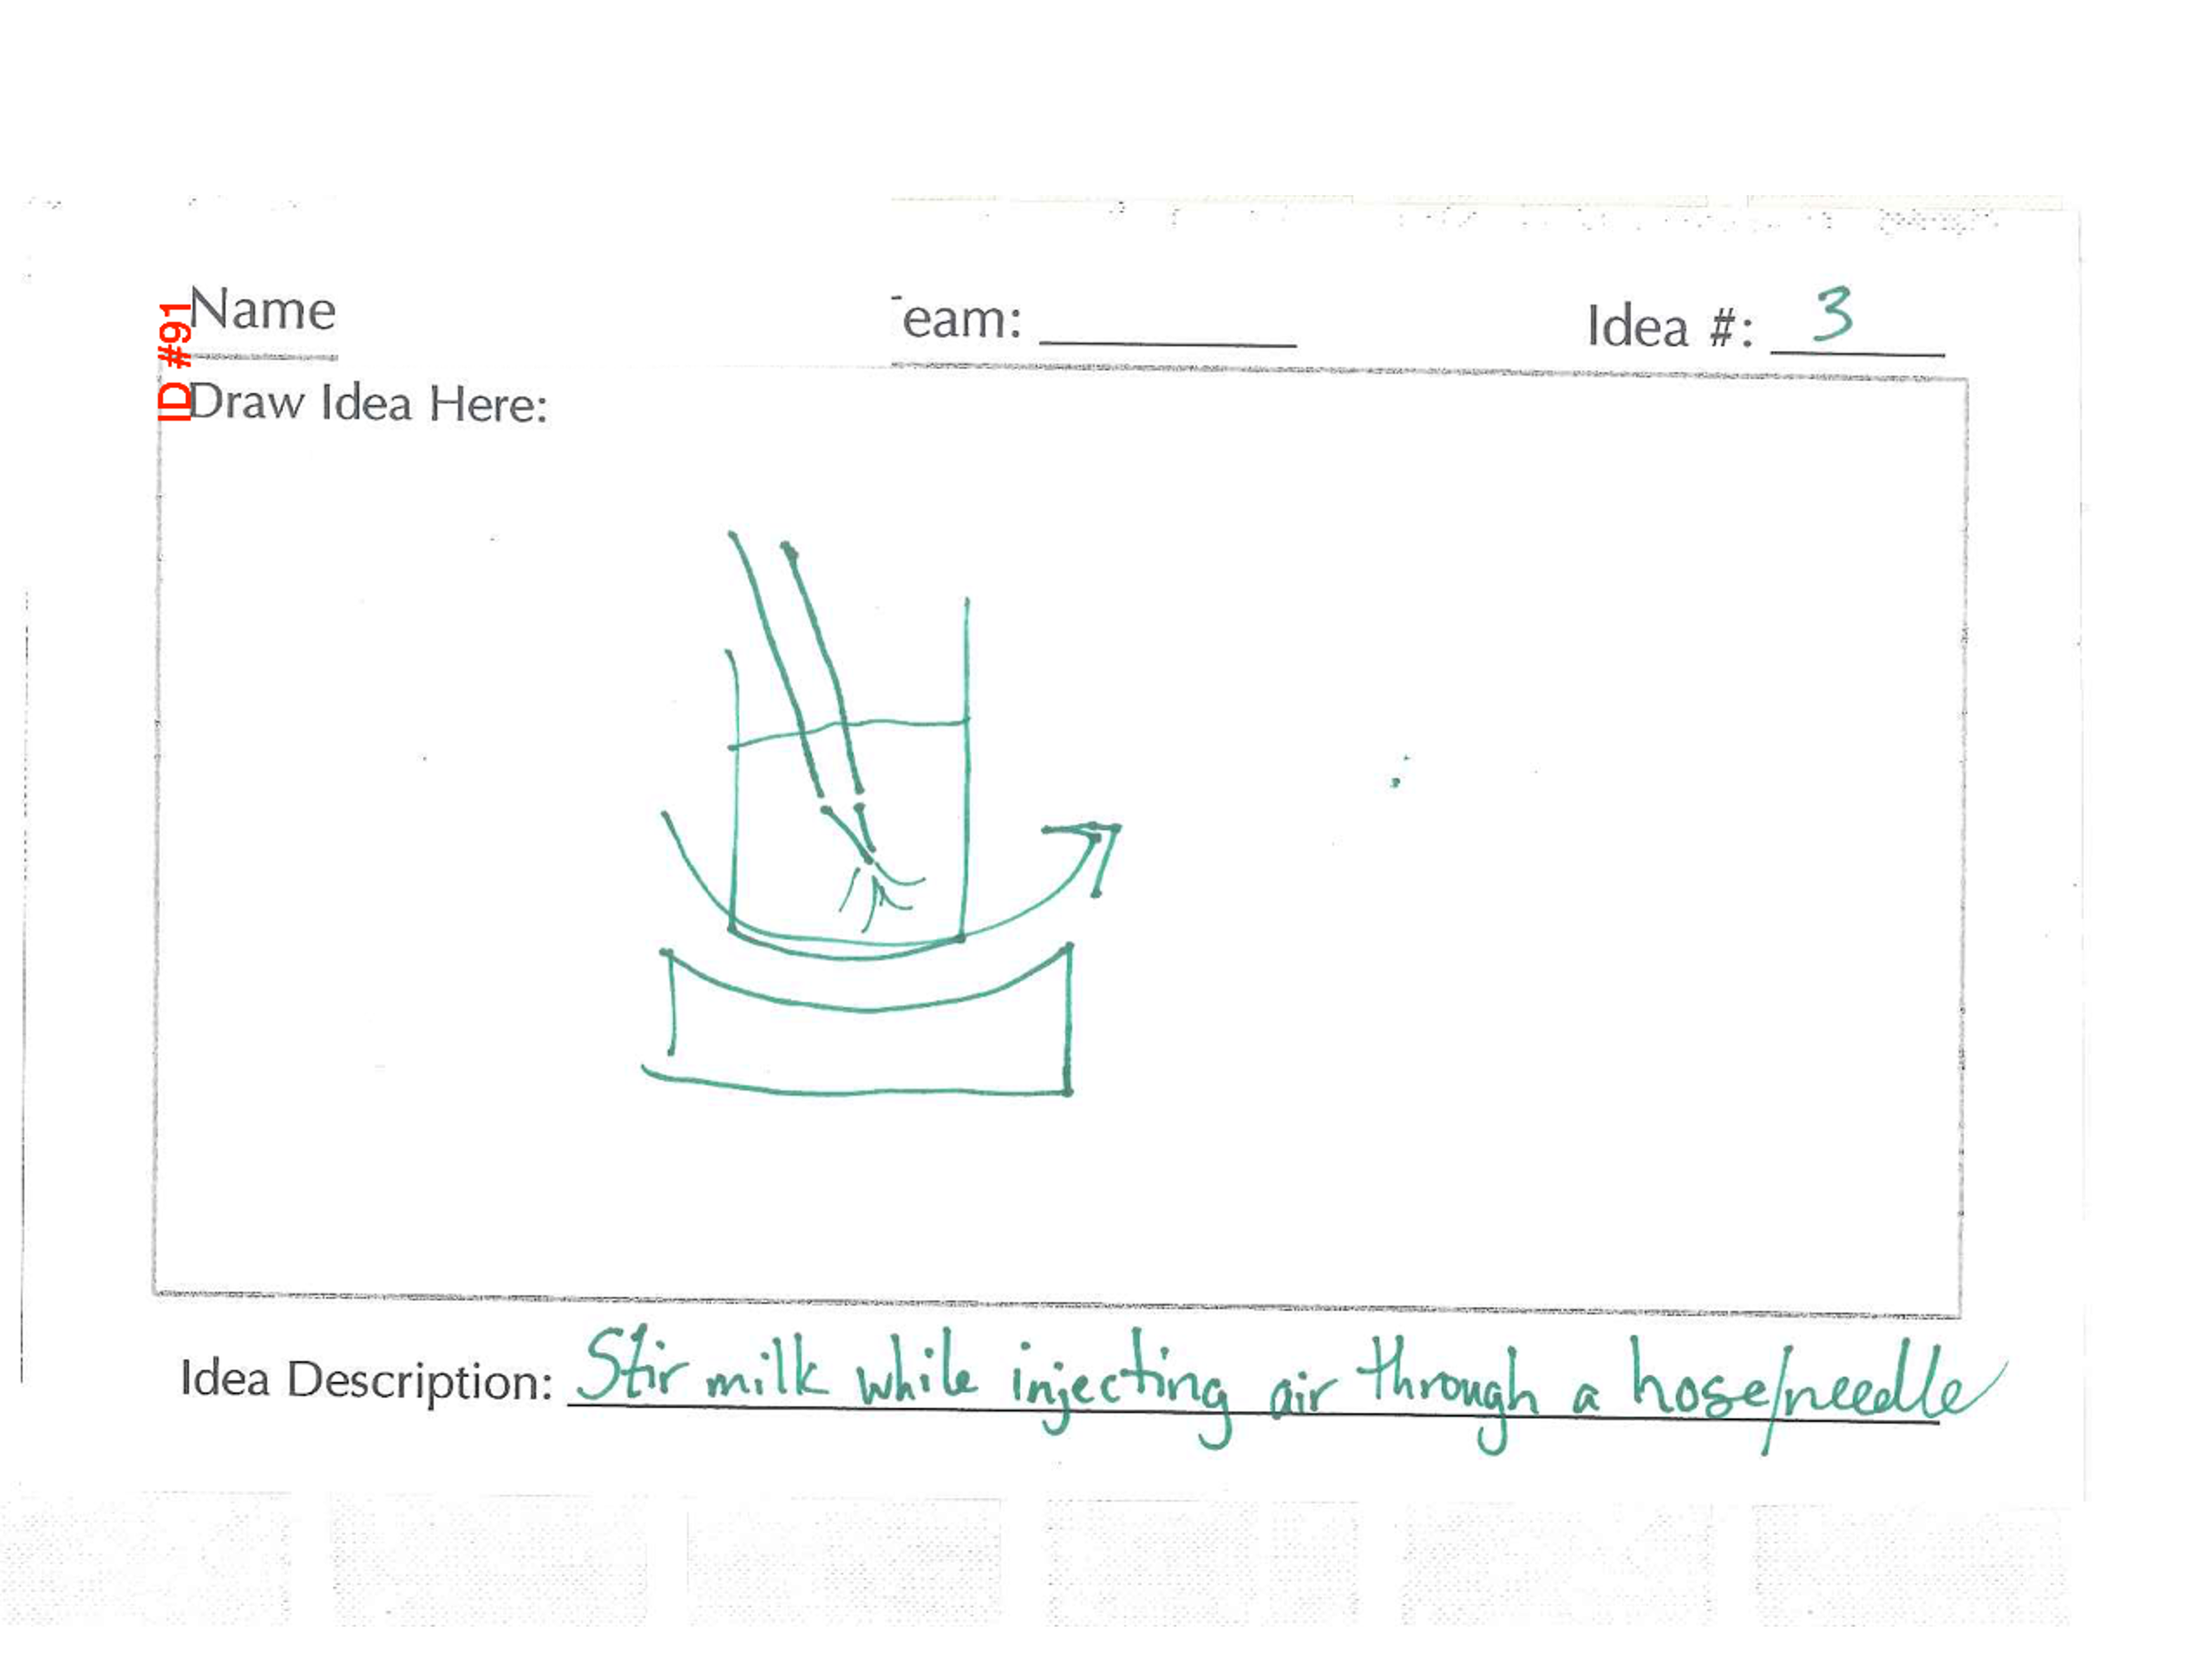 Name eam: Idea #: 3
ID #91
Draw Idea Here:
Idea Description: Stir milk while injecting air through a hose/needle